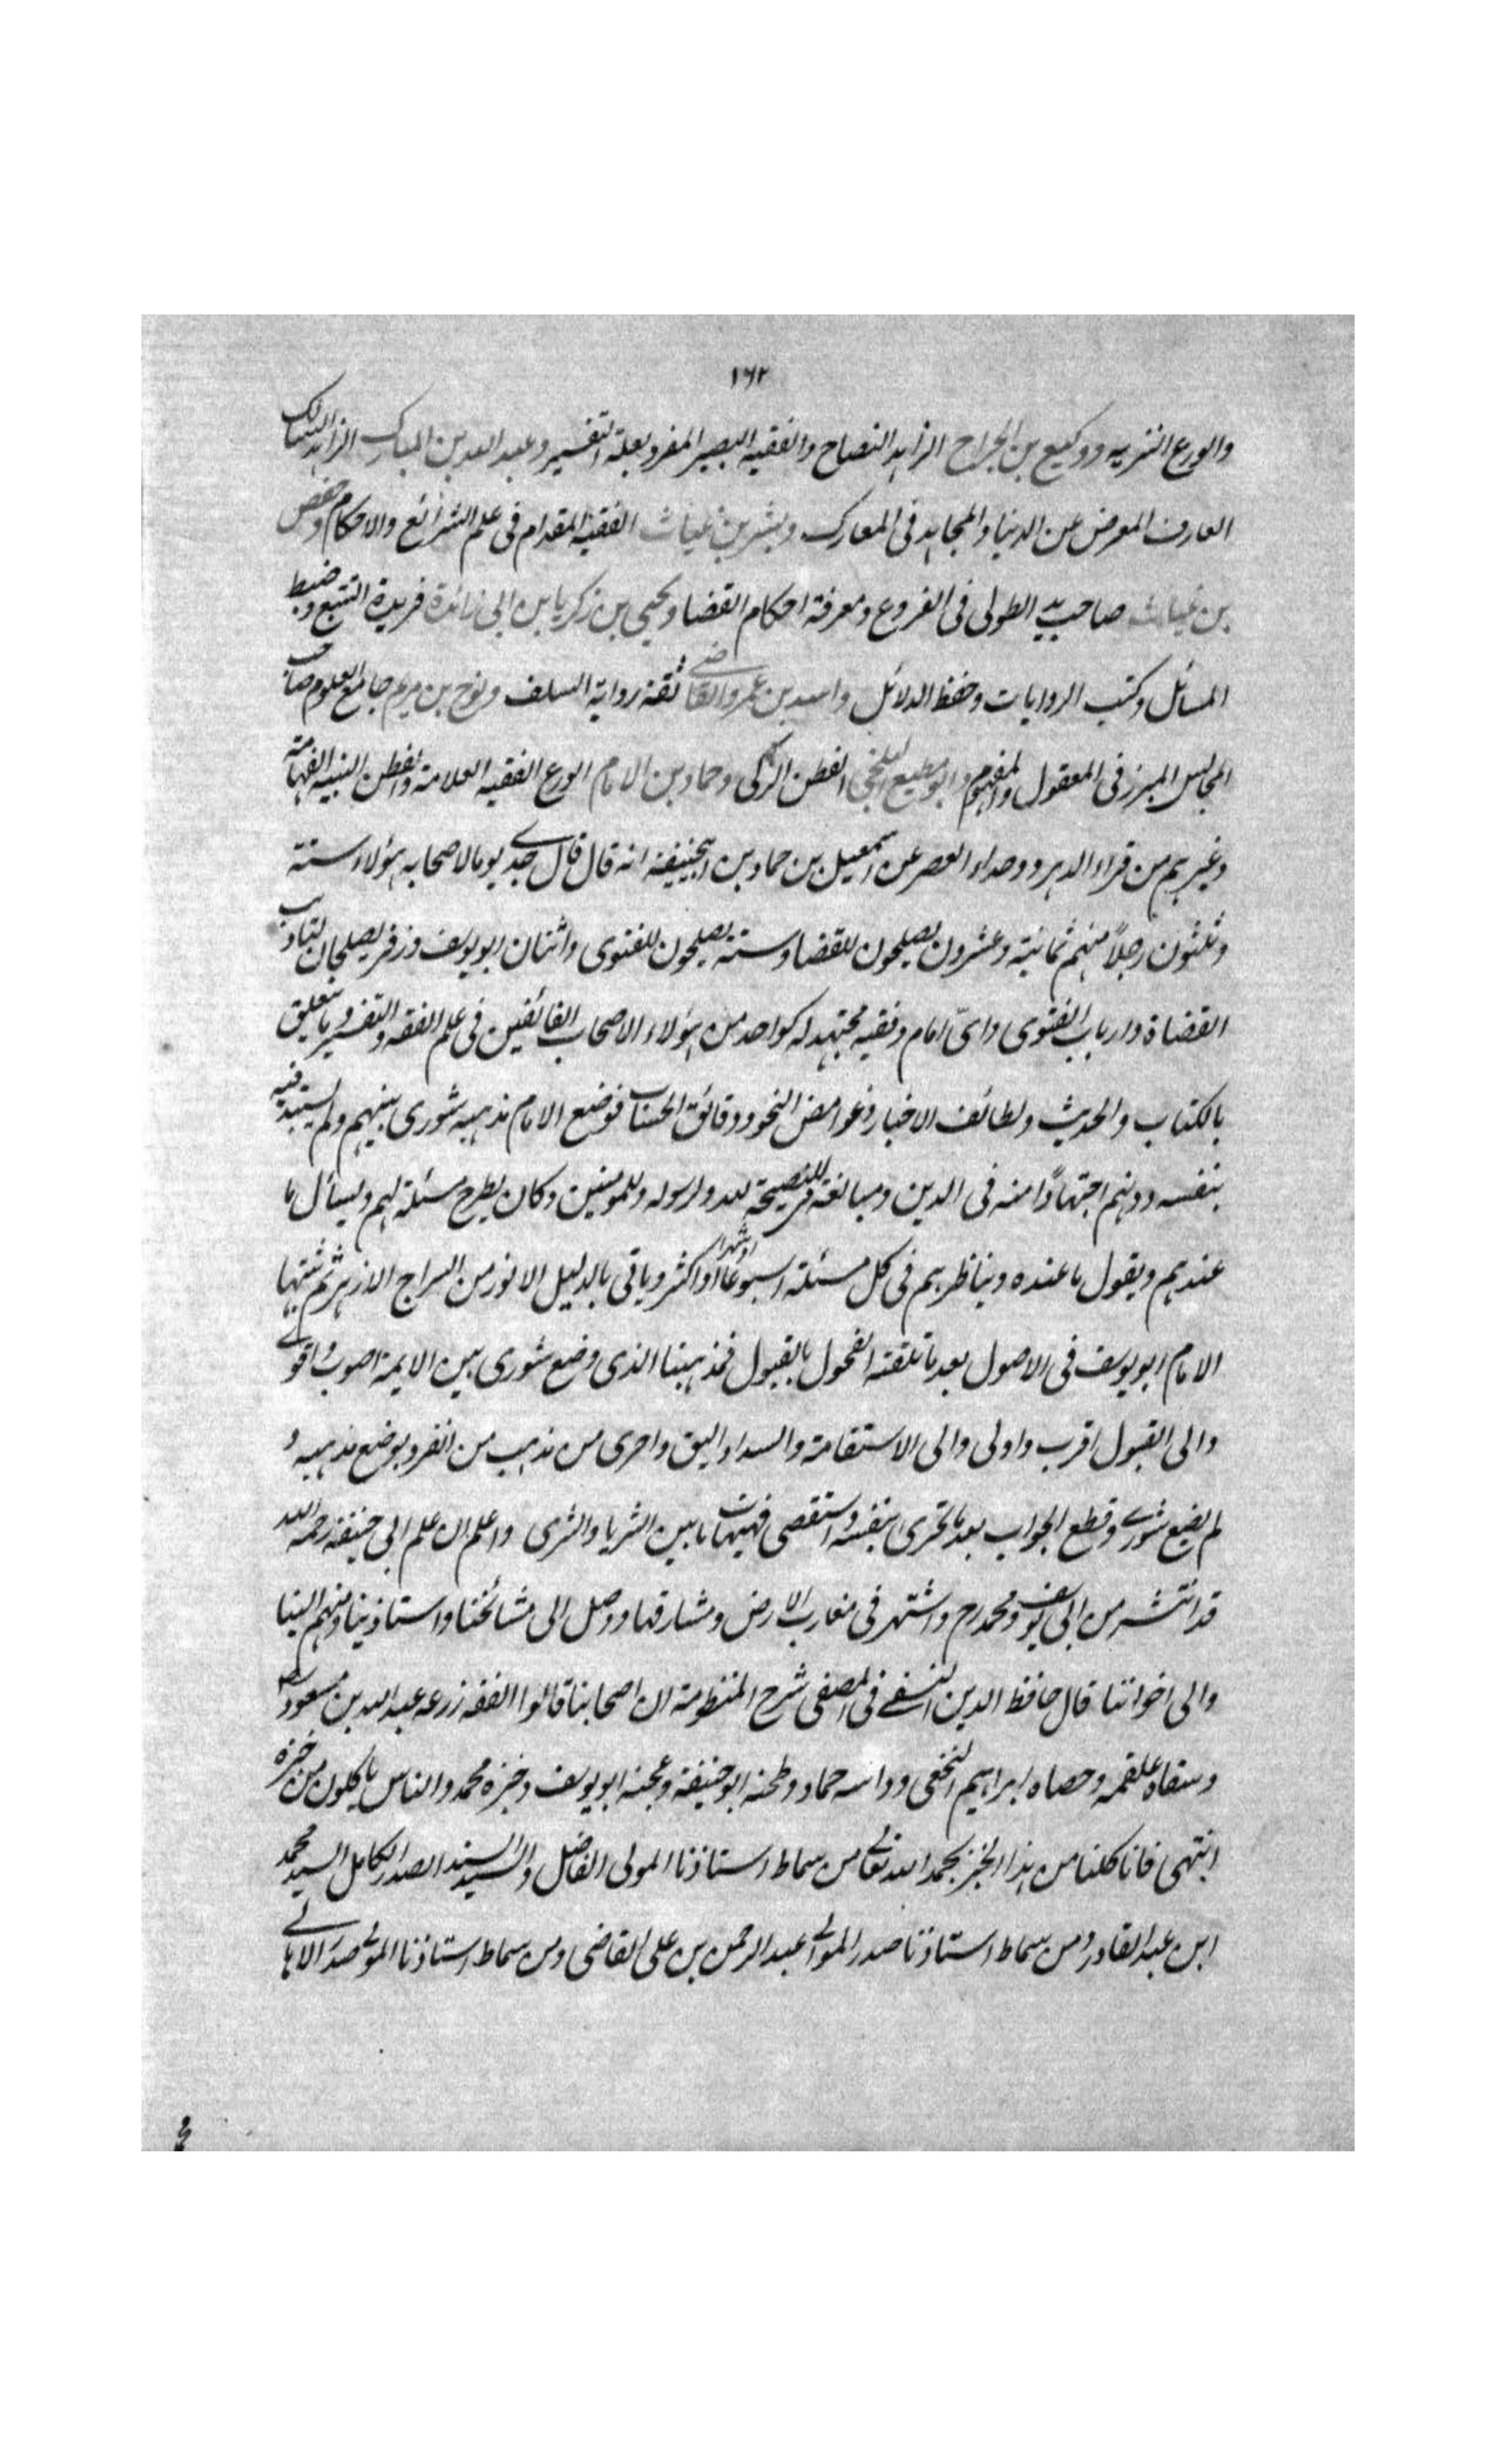 ١٦٢
والورع النزيه ووكيع بن الجراح الزاهد النصاح والفقيه البصير المفرد بعلة التفسير وعبد الله بن المبارك الزاهد السالك
العارف المعرض عن الدنيا والمجاهد فى المعارك وبشر بن غياث الفقيه المقدام فى علم الشرائع والاحكام وحفص
بن غياث صاحب يد الطولى فى الفروع ومعرفة احكام القضا ويحيى بن زكريا بن ابى زائدة فريدة التتبع وضبط
المسائل وكتب الروايات وحفظ الدلائل واسيد بن عمرو القاضى ثقة رواية السلف ونوح بن مريم جامع العلوم صاحب
المجالس المبرز فى المعقول والمفهوم وابو مطيع البلخى الفطن الزكى وحماد بن الامام الورع الفقيه العلامة والفطن النبيه الفهامة
وغيرهم من قراء الدهر ووحداء العصر عن اسمعيل بن حماد بن ابيحنيفة انه قال قال جدى يوما لاصحابه هؤلاء ستة
وثلثون رجلاً منهم ثمانية وعشرون يصلحون للقضا وستة يصلحون للفتوى واثنان ابو يوسف وزفر يصلحان لتاديب
القضاة وارباب الفتوى واىّ امام وفقيه مجتهد له كواحد من هؤلاء الاصحاب الفائقين فى علم الفقه والتفسير وما يتعلق
بالكتاب والحديث ولطائف الاخبار وغوامض النحو ودقائق الحساب فوضع الامام مذهبه شورى بينهم ولم يستبد فيه
بنفسه دونهم اجتهادًا منه فى الدين ومبالغة فى النصيحة لله ولرسوله وللمومنين وكان يطرح مسئلة لهم ويسأل ما
عندهم ويقول ما عنده ويناظرهم فى كل مسئلة اسبوعًا او شهرا او اكثر وياتى بالدليل الانور من السراج الازهر ثم يثبتها
الامام ابو يوسف فى الاصول بعد ما تلقته الفحول بالقبول فمذهبنا الذى وضع شورى بين الايمة اصوب واقوى
والى القبول اقرب واولى والى الاستقامة والسداد اليق واحرى من مذهب من انفرد بوضع مذهبه و
لم يضع شورى وقطع الجواب بعد ما تحرى بنفسه واستقصى فهيهات ما بين الثريا والثرى واعلم ان علم ابى حنيفة رحمه الله
قد انتشر من ابى يوسف ومحمد رح واشتهر فى مغارب الارض ومشارقها ووصل الى مشائخنا واستاذينا ومنهم الينا
والى اخواننا قال حافظ الدين النسفى فى المصفى شرح المنظومة ان اصحابنا قالوا الفقه زرعه عبد الله بن مسعود رضه
وسقاه علقمه وحصاه ابراهيم النخعى وداسه حماد وطحنه ابو حنيفة وعجنه ابو يوسف وخبزه محمد والناس ياكلون من خبزه
انتهى فانا كلنا من هذا الخبز بحمد الله تعالى من سماط استاذنا المولى الفاضل والسيد السند الصدر الكامل السيد محمد
ابن عبد القادر ومن سماط استاذنا صدر الموالى عبد الرحمن بن على القاضى ومن سماط استاذنا المولى صدر الاهالى